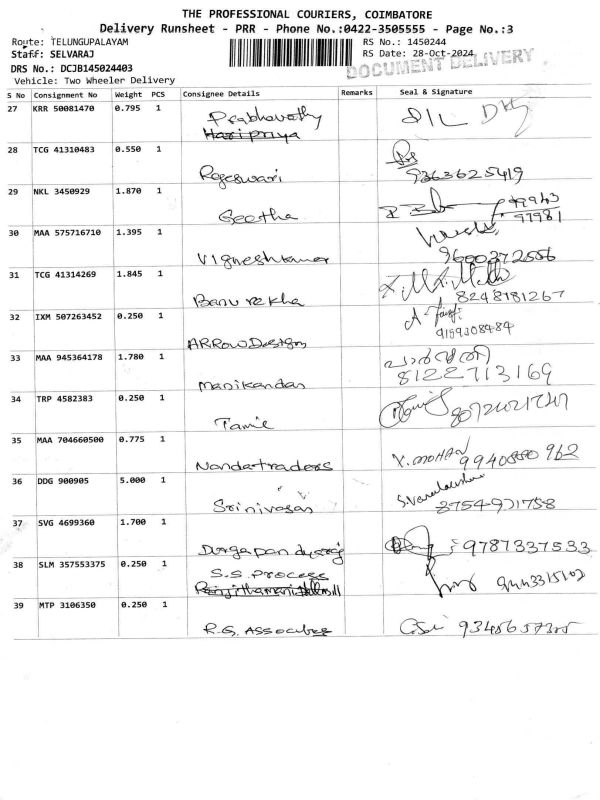 THE PROFESSIONAL COURIERS, COIMBATORE
Delivery Runsheet - PRR - Phone No.:0422-3505555 - Page No.:3
Route: TELUNGUPALAYAM RS No.: 1450244
Staff: SELVARAJ RS Date: 28-Oct-2024
DOCUMENT DELIVERY
DRS No.: DCJB145024403
Vehicle: Two Wheeler Delivery
S No Consignment No Weight PCS Consignee Details Remarks Seal & Signature
27 KRR 50081470 0.795 1 Prabhavathy
Haripriya
28 TCG 41310483 0.550 1
Rajeswari 9363625419
29 NKL 3450929 1.870 1
Geetha 99943
97981
30 MAA 575716710 1.395 1
Vigneshkumar 9600372556
31 TCG 41314269 1.845 1
Banu rekha 8248181267
32 IXM 507263452 0.250 1
ARROW Designs 9159208484
33 MAA 945364178 1.780 1
Manikandan 8122713169
34 TRP 4582383 0.250 1
35 MAA 704660500 0.775 1
Nandatraders Y. MOHAN 9940580 962
36 DDG 900905 5.000 1
Srinivasan 8754921758
37 SVG 4699360 1.700 1
Durgapandyaraj 9787337533
38 SLM 357553375 0.250 1 S.S. process
39 MTP 3106350 0.250 1
R.G. Associates